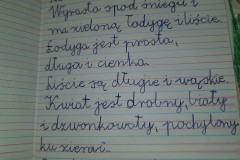 Wyrasta spod śniegu i
ma zieloną łodygę i liście.
Łodyga jest prosta,
długa i cienka.
Liście są długie i wąskie.
Kwiat jest drobny, biały
i dzwonkowaty, pochylony
ku ziemi.